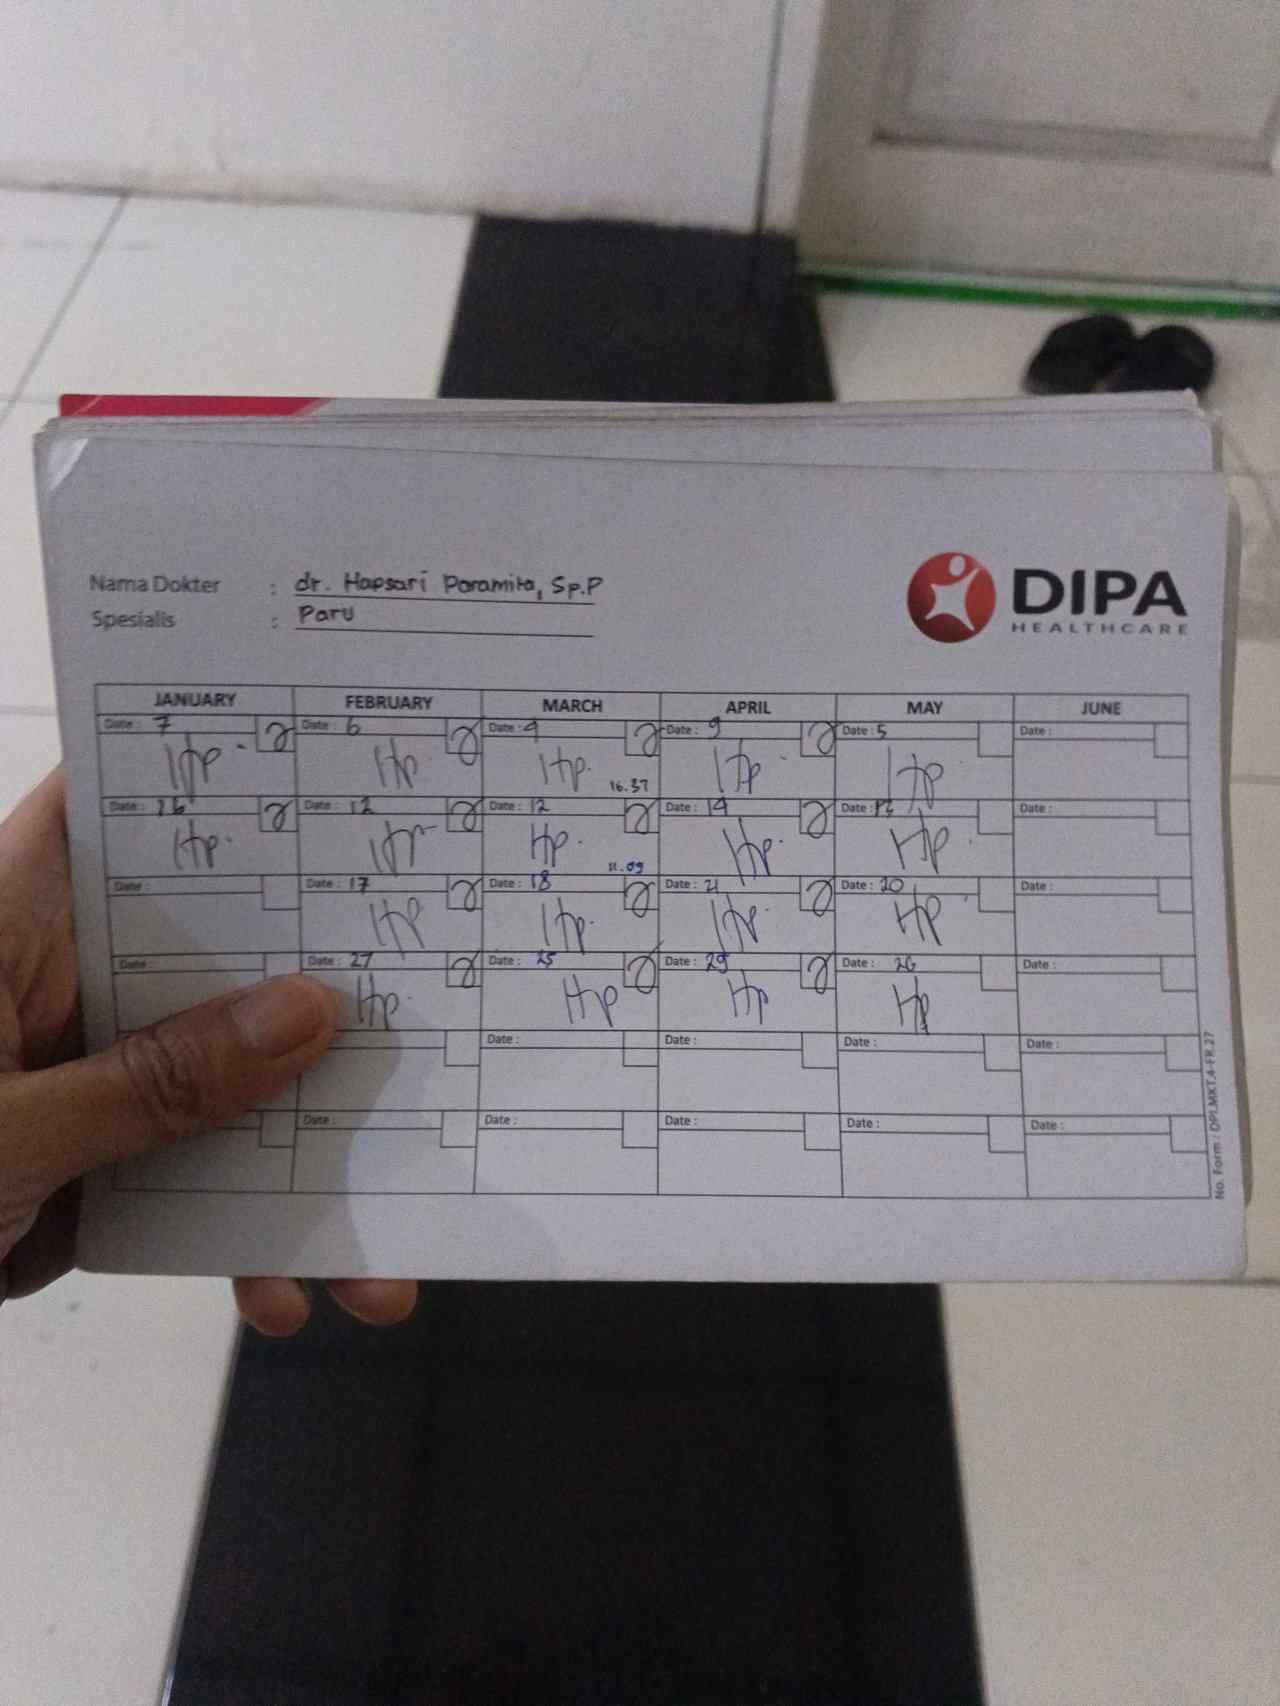 Nama Dokter : dr. Hapsari Paramita, Sp.P
Spesialis : Paru
DIPA
HEALTHCARE
JANUARY FEBRUARY MARCH APRIL MAY JUNE
Date : 7 Date : 6 Date : 4 Date : 9 Date : 5 Date :
Hp Hp Hp Hp Hp
16.37
Date : 16 Date : 12 Date : 12 Date : 14 Date : Date :
Hp Hp Hp Hp Hp
11.09
Date : Date : 17 Date : 18 Date : 21 Date : 20 Date :
Hp Hp Hp Hp
Date : Date : 27 Date : 25 Date : 29 Date : 26 Date :
Hp Hp Hp Hp
Date : Date : Date : Date :
Date : Date : Date : Date : Date :
No. Form : DPI.MKT.4-FR.27